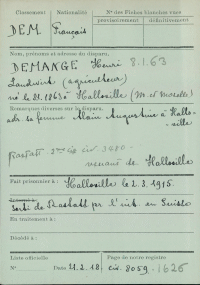 Classement
Nationalité
Nos des Fiches blanches vues
provisoirement
définitivement
DEM.
Français
Nom, prénoms et adresse du disparu.
DEMANGE Henri 8.1.63
Landwirt (agriculteur)
né le 1863 à Halloville (M. et Moselle)
Remarques diverses sur le disparu.
adr sa femme Augustine à Hallo-
ville
Rastatt civ. 3480
venant de Halloville
Fait prisonnier à : Halloville le 2.3.1915.
Sorti de Rastatt par l'int. en Suisse
En traitement à :
Décédé à :
Liste officielle
Page de notre registre
No
Date 21.2.18. civ. 8059. 1626